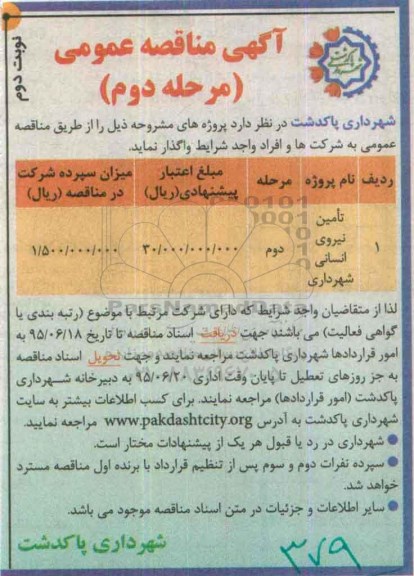 نوبت دوم
آگهی مناقصه عمومی
(مرحله دوم)
شهرداری پاکدشت در نظر دارد پروژه های مشروحه ذیل را از طریق مناقصه
عمومی به شرکت ها و افراد واجد شرایط واگذار نماید.
ردیف نام پروژه مرحله مبلغ اعتبار پیشنهادی(ریال) میزان سپرده شرکت در مناقصه (ریال)
۱ تأمین نیروی انسانی شهرداری دوم ۳۰/۰۰۰/۰۰۰/۰۰۰ ۱/۵۰۰/۰۰۰/۰۰۰
لذا از متقاضیان واجد شرایط که دارای شرکت مرتبط با موضوع (رتبه بندی یا
گواهی فعالیت) می باشند جهت دریافت اسناد مناقصه تا تاریخ ۹۵/۰۶/۱۸ به
امور قراردادها شهرداری پاکدشت مراجعه نمایند و جهت تحویل اسناد مناقصه
به جز روزهای تعطیل تا پایان وقت اداری ۹۵/۰۶/۲۰ به دبیرخانه شهرداری
پاکدشت (امور قراردادها) مراجعه نمایند. برای کسب اطلاعات بیشتر به سایت
شهرداری پاکدشت به آدرس www.pakdashtcity.org مراجعه نمایید.
● شهرداری در رد یا قبول هر یک از پیشنهادات مختار است.
● سپرده نفرات دوم و سوم پس از تنظیم قرارداد با برنده اول مناقصه مسترد
خواهد شد.
● سایر اطلاعات و جزئیات در متن اسناد مناقصه موجود می باشد.
شهرداری پاکدشت
۳۷۹